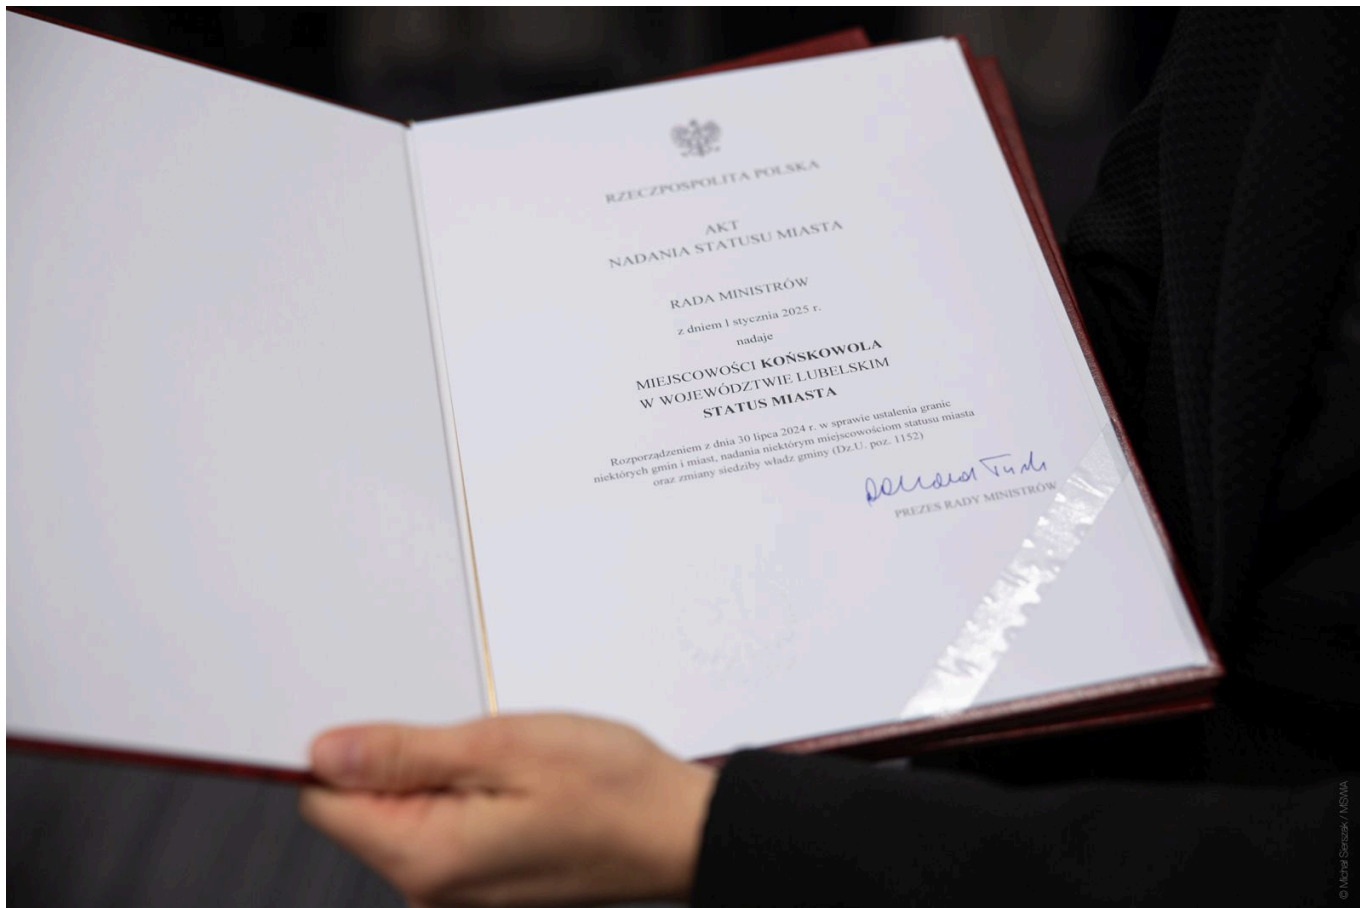 RZECZPOSPOLITA POLSKA
AKT
NADANIA STATUSU MIASTA
RADA MINISTRÓW
z dniem 1 stycznia 2025 r.
nadaje
MIEJSCOWOŚCI KOŃSKOWOLA
W WOJEWÓDZTWIE LUBELSKIM
STATUS MIASTA
Rozporządzeniem z dnia 30 lipca 2024 r. w sprawie ustalenia granic
niektórych gmin i miast, nadania niektórym miejscowościom statusu miasta
oraz zmiany siedziby władz gminy (Dz.U. poz. 1152)
Donald Tusk
PREZES RADY MINISTRÓW
© Michał Sierszak / MSWiA